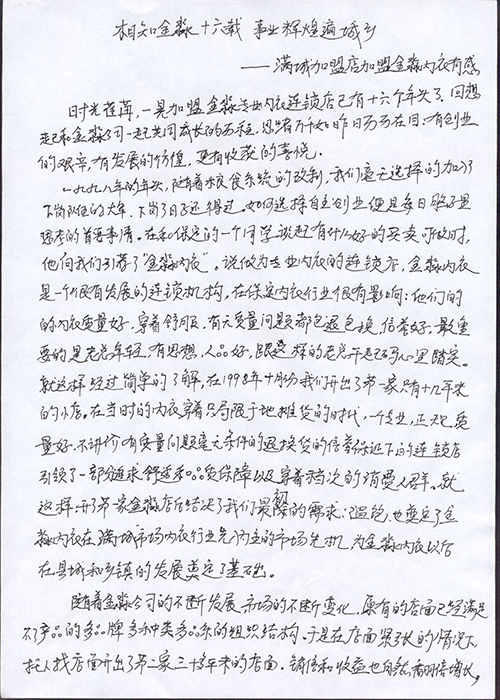 相知金淼十六载 事业辉煌遍城乡
——满城加盟店加盟金淼内衣有感
时光荏苒,一晃加盟金淼专业内衣连锁店已有十六个年头了,回想
起和金淼公司一起共同成长的历程,思绪万千如昨日历历在目:有创业
的艰辛,有发展的价值,更有收获的喜悦。
一九九八年的年头,随着粮食系统的改制,我们毫无选择的加入了
下岗队伍的大军,下岗了日子还得过。如何选择自主创业便是每日脑子里
思考的首要事情。在和保定的一个同学谈起有什么好的买卖可做时,
他向我们引荐了“金淼内衣”。说做为专业内衣的连锁店,金淼内衣
是一个很有发展的连锁机构,在保定内衣行业很有影响:他们的
的内衣质量好,穿着舒服,有无质量问题都包退包换,信誉好,最重
要的是老总年轻,有思想,人品好,跟这样的老总干起码心里踏实。
就这样经过简单的了解,在1998年十月份我们开出了第一家只有十几平米
的小店。在当时的内衣穿着只局限于地摊货的时代,一个专业,正规,质
量好,不讲价,有质量问题毫无条件的退换货的信誉保证下的连锁店
引领了一部分追求舒适和品质保障以及穿着档次的消费人群。就
这样,开了第一家金淼店后结决了我们最初的需求:温饱,也奠定了金
淼内衣在满城市场内衣行业先入为主的市场先机,为金淼内衣以后
在县城和乡镇的发展奠定了基础。
随着金淼公司的不断发展,市场的不断变化,原有的店面已经满足
不了产品的多品牌多种类多品系的组织结构。于是在店面紧张的情况下,
托人找店面开出了第二家三十多平米的店面。销售和收益也自然翻倍增长,